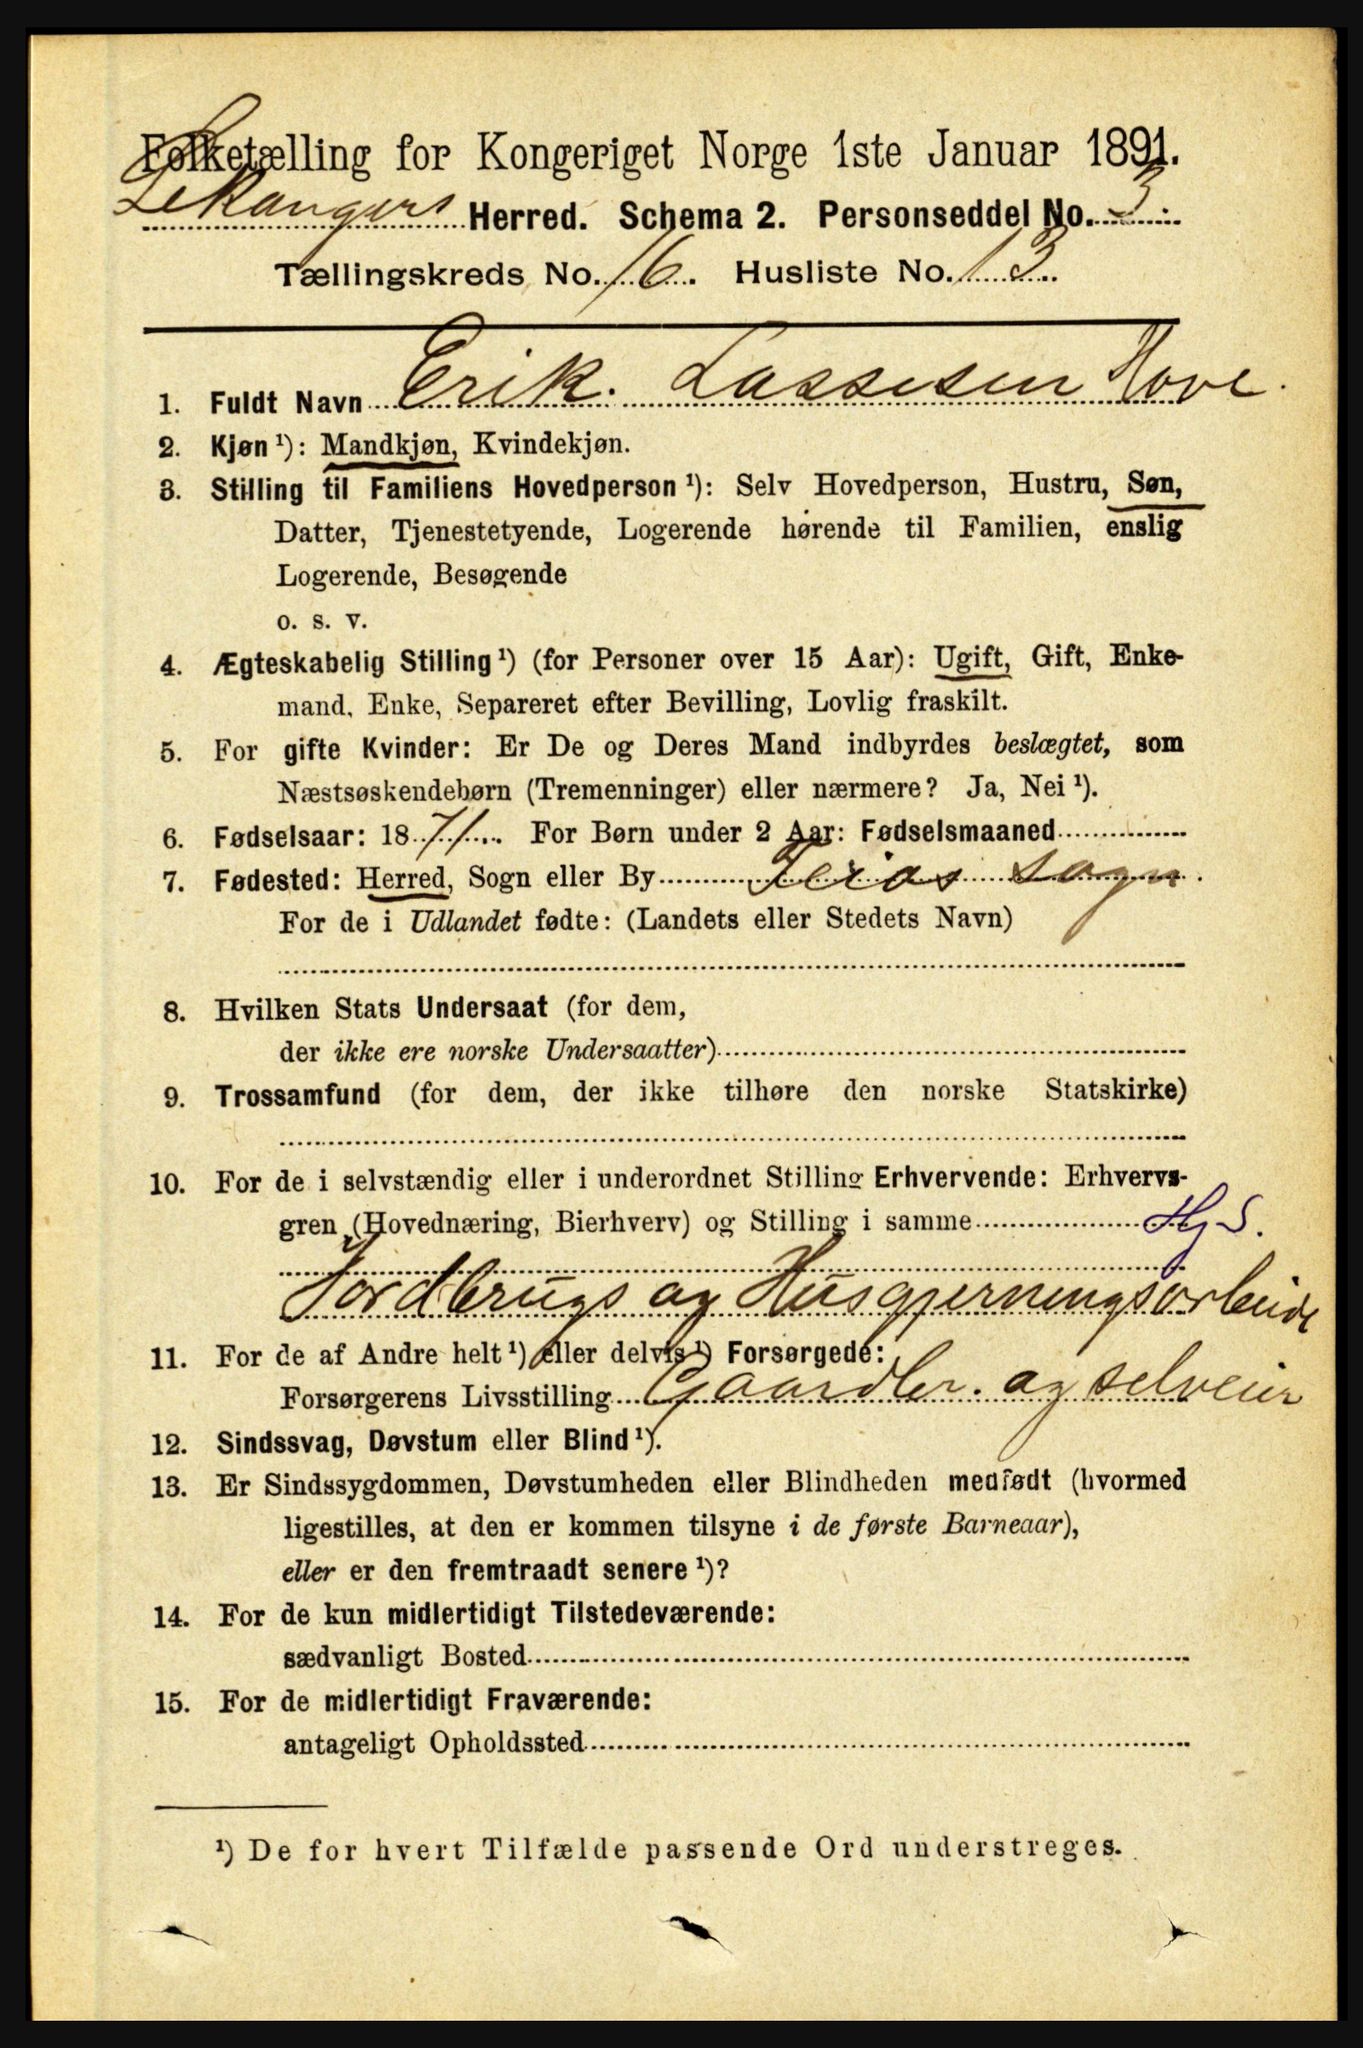 Folketælling for Kongeriget Norge 1ste Januar 1891.
Lekangers Herred. Schema 2. Personseddel No. 3.
Tællingskreds No. 16. Husliste No. 13.
1. Fuldt Navn Erik. Lassesen Hove.
2. Kjøn ¹): Mandkjøn, Kvindekjøn.
3. Stilling til Familiens Hovedperson ¹): Selv Hovedperson, Hustru, Søn,
Datter, Tjenestetyende, Logerende hørende til Familien, enslig
Logerende, Besøgende
o. s. v.
4. Ægteskabelig Stilling ¹) (for Personer over 15 Aar): Ugift, Gift, Enke-
mand, Enke, Separeret efter Bevilling, Lovlig fraskilt.
5. For gifte Kvinder: Er De og Deres Mand indbyrdes beslægtet, som
Næstsøskendebørn (Tremenninger) eller nærmere? Ja, Nei ¹).
6. Fødselsaar: 1871. For Børn under 2 Aar: Fødselsmaaned
7. Fødested: Herred, Sogn eller By Feios sogn.
For de i Udlandet fødte: (Landets eller Stedets Navn)
8. Hvilken Stats Undersaat (for dem,
der ikke ere norske Undersaatter)
9. Trossamfund (for dem, der ikke tilhøre den norske Statskirke)
10. For de i selvstændig eller i underordnet Stilling Erhvervende: Erhvervs-
gren (Hovednæring, Bierhverv) og Stilling i samme Hj S.
Jordbrugs og Husgjerningsarbeide
11. For de af Andre helt ¹) eller delvis ¹) Forsørgede:
Forsørgerens Livsstilling Gaardbr. og selveier
12. Sindssvag, Døvstum eller Blind ¹).
13. Er Sindssygdommen, Døvstumheden eller Blindheden medfødt (hvormed
ligestilles, at den er kommen tilsyne i de første Barneaar),
eller er den fremtraadt senere ¹)?
14. For de kun midlertidigt Tilstedeværende:
sædvanligt Bosted
15. For de midlertidigt Fraværende:
antageligt Opholdssted
¹) De for hvert Tilfælde passende Ord understreges.